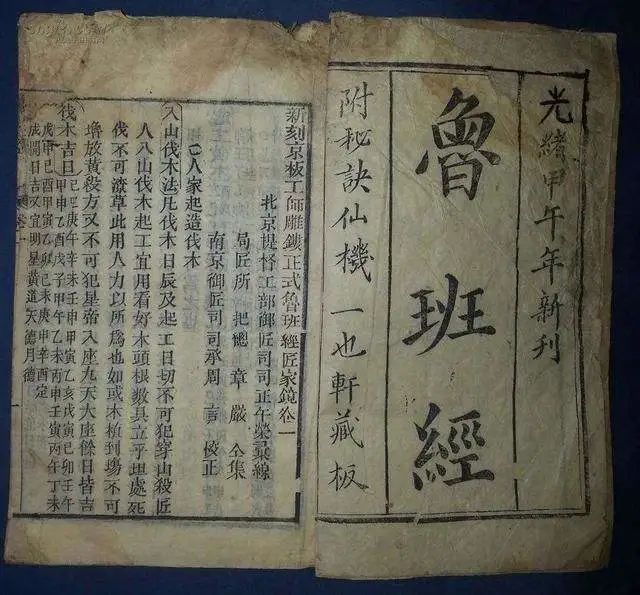 光緒甲午年新刊
魯班經
附秘訣仙機一也軒藏板
新刻京板工師雕鏤正式魯班經匠家鏡卷一
北京提督工部御匠司司正午榮彙線
局匠所把總章嚴仝集
南京御匠司司承周言校正
人家起造伐木
入山伐木法凡伐木日辰及起工日切不可犯穿山殺匠
人入山伐木起工宜用看好木頭根數具立平坦處死
伐不可潦草此用人力以所為也如或木植到塲不可
堆放黃殺方又不可犯皇帝入座九天大座餘日皆吉
伐木吉日
己巳庚午辛未壬申甲寅乙亥戊寅己卯壬午
甲申乙酉戊子甲午乙未丙申壬寅丙午丁未
戊申己酉甲寅乙卯己未庚申辛酉定
成開日吉又宜明星黃道天德月德